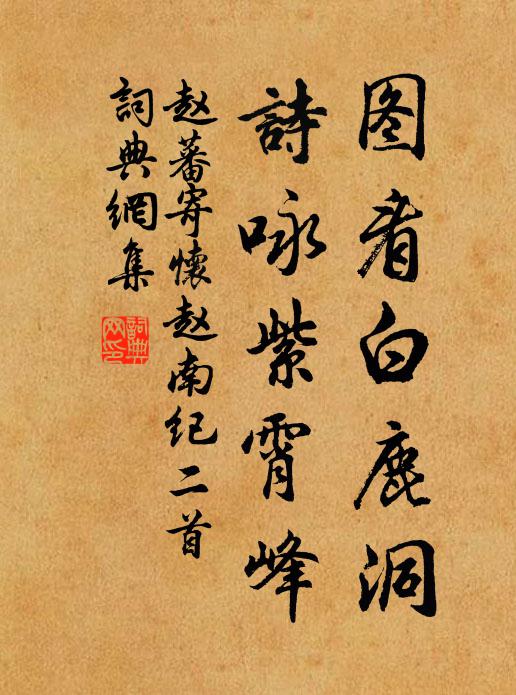 图看白鹿洞
詩咏紫霄峰
赵蕃寄懷赵南纪二首
詞典網集
詞典网印